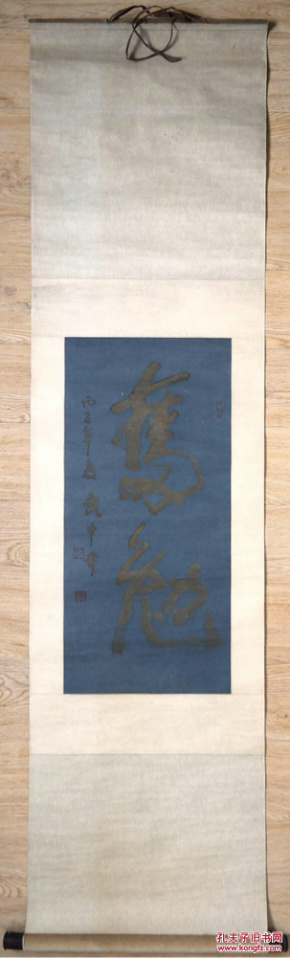 奮勉
丙子年夏 武中奇
孔夫子旧书网
www.kongfz.com